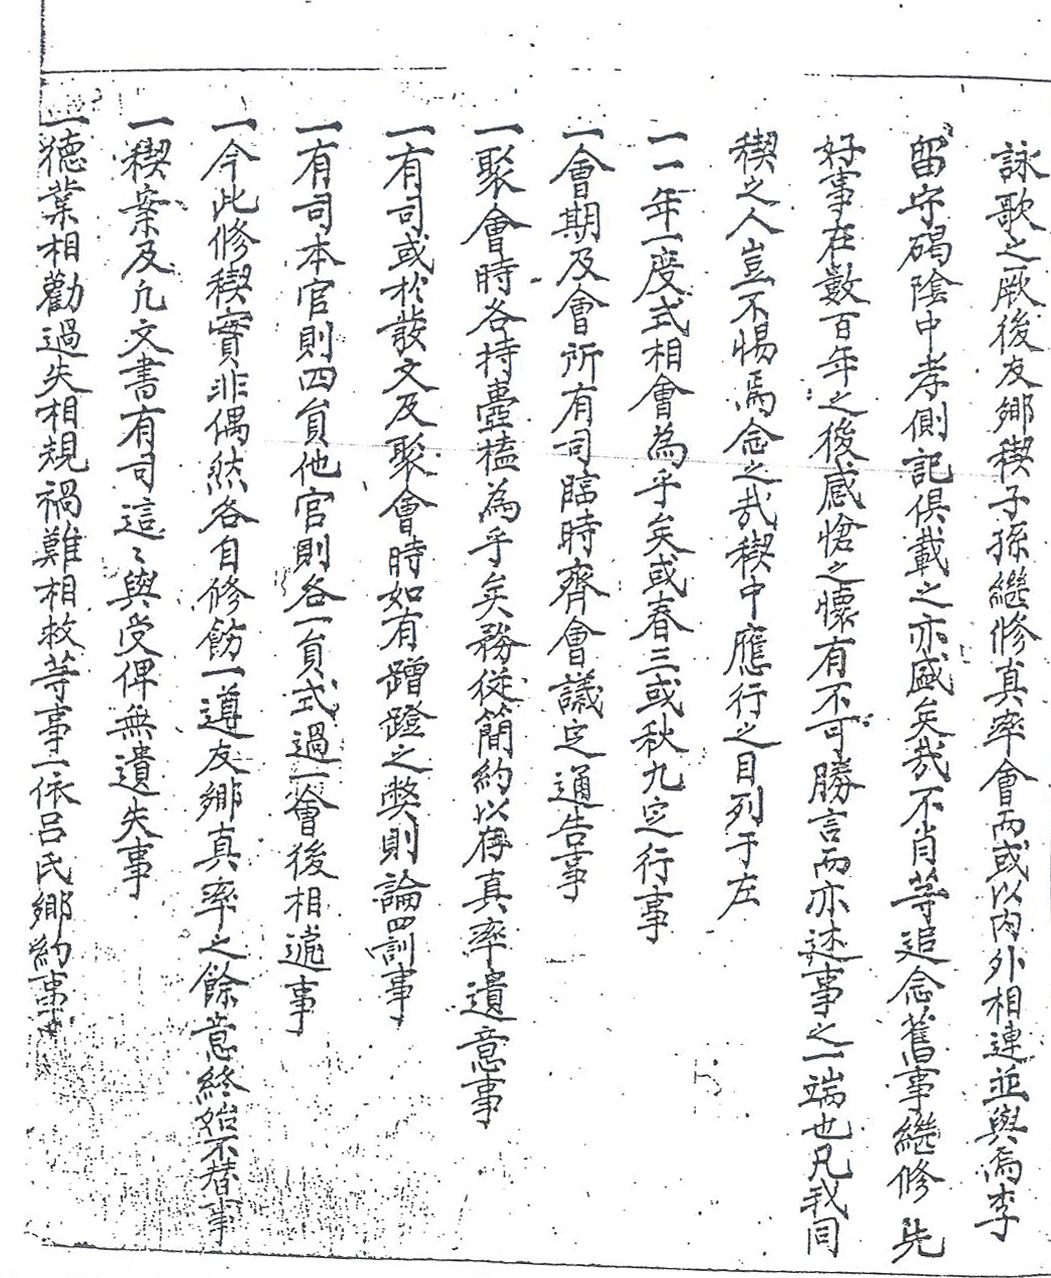 詠歌之厥後友鄉稧子孫繼修真率會而或以內外相連並與焉李
留守碣陰中孝側記俱載之亦盛矣哉不肖等追念舊事繼修先
好事在數百年之後感愴之懷有不可勝言而亦述事之一端也凡我同
稧之人豈不惕焉念之哉稧中應行之目列于左
一一年一度式相會為乎矣或春三或秋九定行事
一會期及會所有司臨時齊會議定通告事
一聚會時各持壺榼為乎矣務從簡約以存真率遺意事
一有司或於發文及聚會時如有蹭蹬之弊則論罰事
一有司本官則四員他官則各一員式過一會後相遞事
一今此修稧實非偶然各自修飭一遵友鄉真率之餘意終始不替事
一稧案及凡文書有司這〻與受俾無遺失事
一德業相勸過失相規禍難相救等事一依呂氏鄉約事